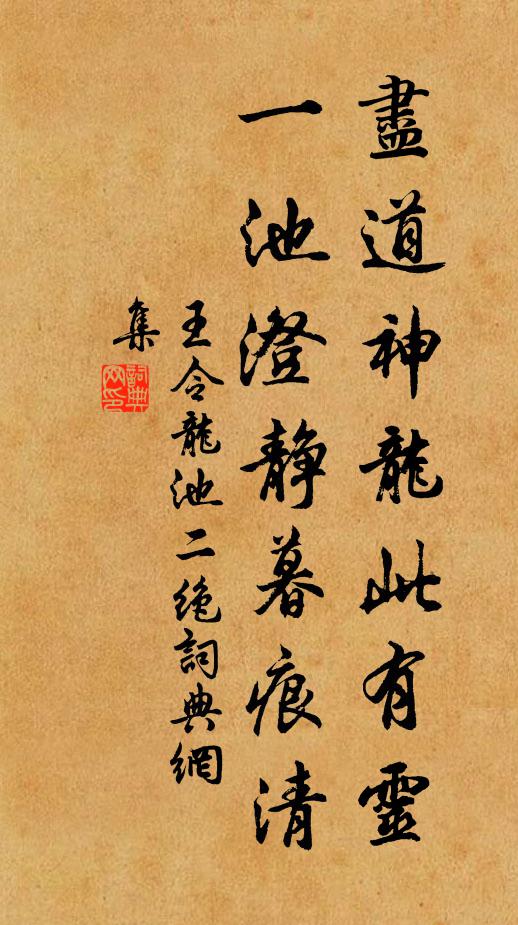 盡道神龍此有靈
一池澄静暮痕清
王令龍池二絶詞典網
集
詞典網印